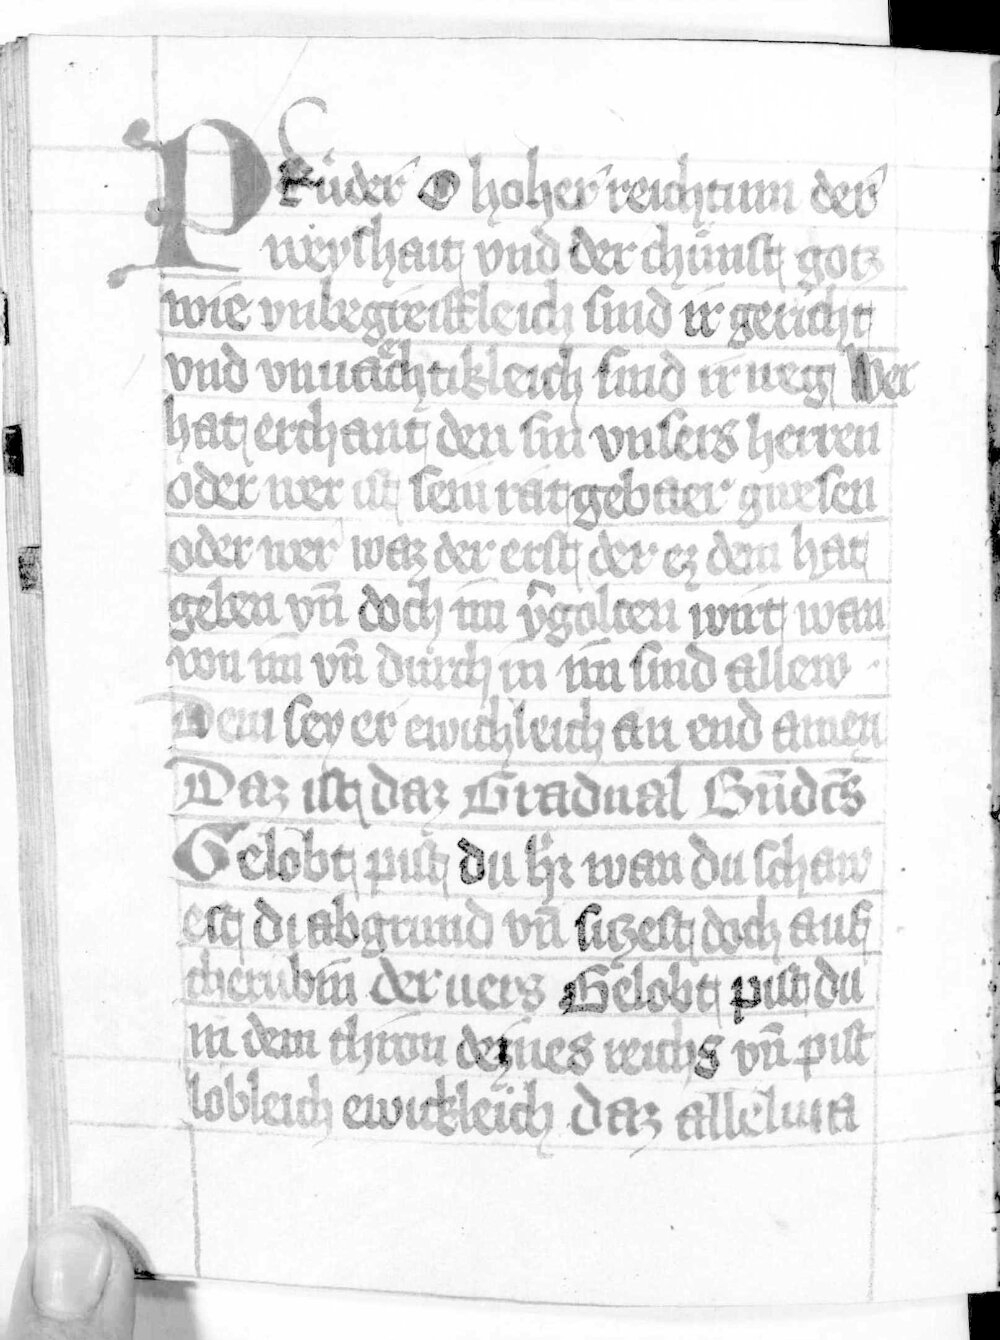 Prüder O hoher reichtum der
weyshait vnd der chünst gotz
wie vnbegreiffleich sind ir gericht
vnd vnuͤrachtikleich sind ir weg Wer
hat erchant den sin vnsers herren
oder wer ist sein ratgebaer gwesen
oder wer waz der erst der ez dem hat
geben vn̄ doch im v̄golten wirt wan
von im vn̄ durch in im sind allew ·
Dem sey er ewichleich an end amen
Daz ist daz Gradual Bn̄dc̄s
Gelobt pist du hr̄ wan du schaw
est di abgrund vn̄ sitzest doch auf
cherubin der uers Gelobt pist du
in dem thron deines reichs vn̄ pist
lobleich ewickleich daz alleluia